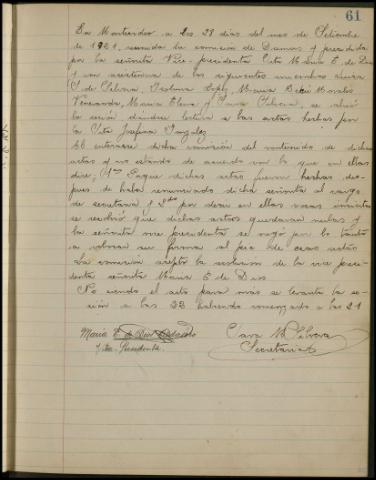 61
En Montevideo a los 28 dias del mes de Setiembre
de 1921, reunida la comision de Damas y presidida
por la señorita Vice-presidenta Srta M. Luis E. de Dios
y con asistencia de los siguientes miembros
S. de Isolina López, Maria Morales
Maria Elena y Sara se abrió
la sesión dandose lectura a las actas hechas por
la Srta Josefina Gonzalez
Al enterarse dicha comisión del contenido de dichas
actas y no estando de acuerdo con lo que en ellas
dice; 1º Porque dichas actas fueron hechas des-
pues de haber renunciado dicha señorita al cargo
de secretaria y 2do por decir en ellas cosas inciertas
se resolvió que dichas actas quedaran nulas y
la señorita vice presidenta se negó por lo tanto
a colocar su firma al pie de esas actas
La comisión aceptó la resolucion de la vice presi-
denta señorita Maria E de Dios
No siendo el acto para más se levanta la se-
sión a las 23 habiendo comenzado a las 21
Maria E. de Dios
Vice-Presidenta.
Sara
Secretaria